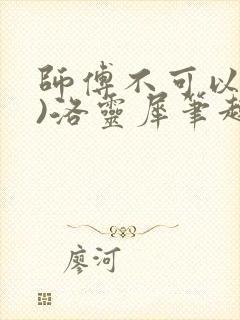 師傅不可以
)洛靈犀筆趣
廖河